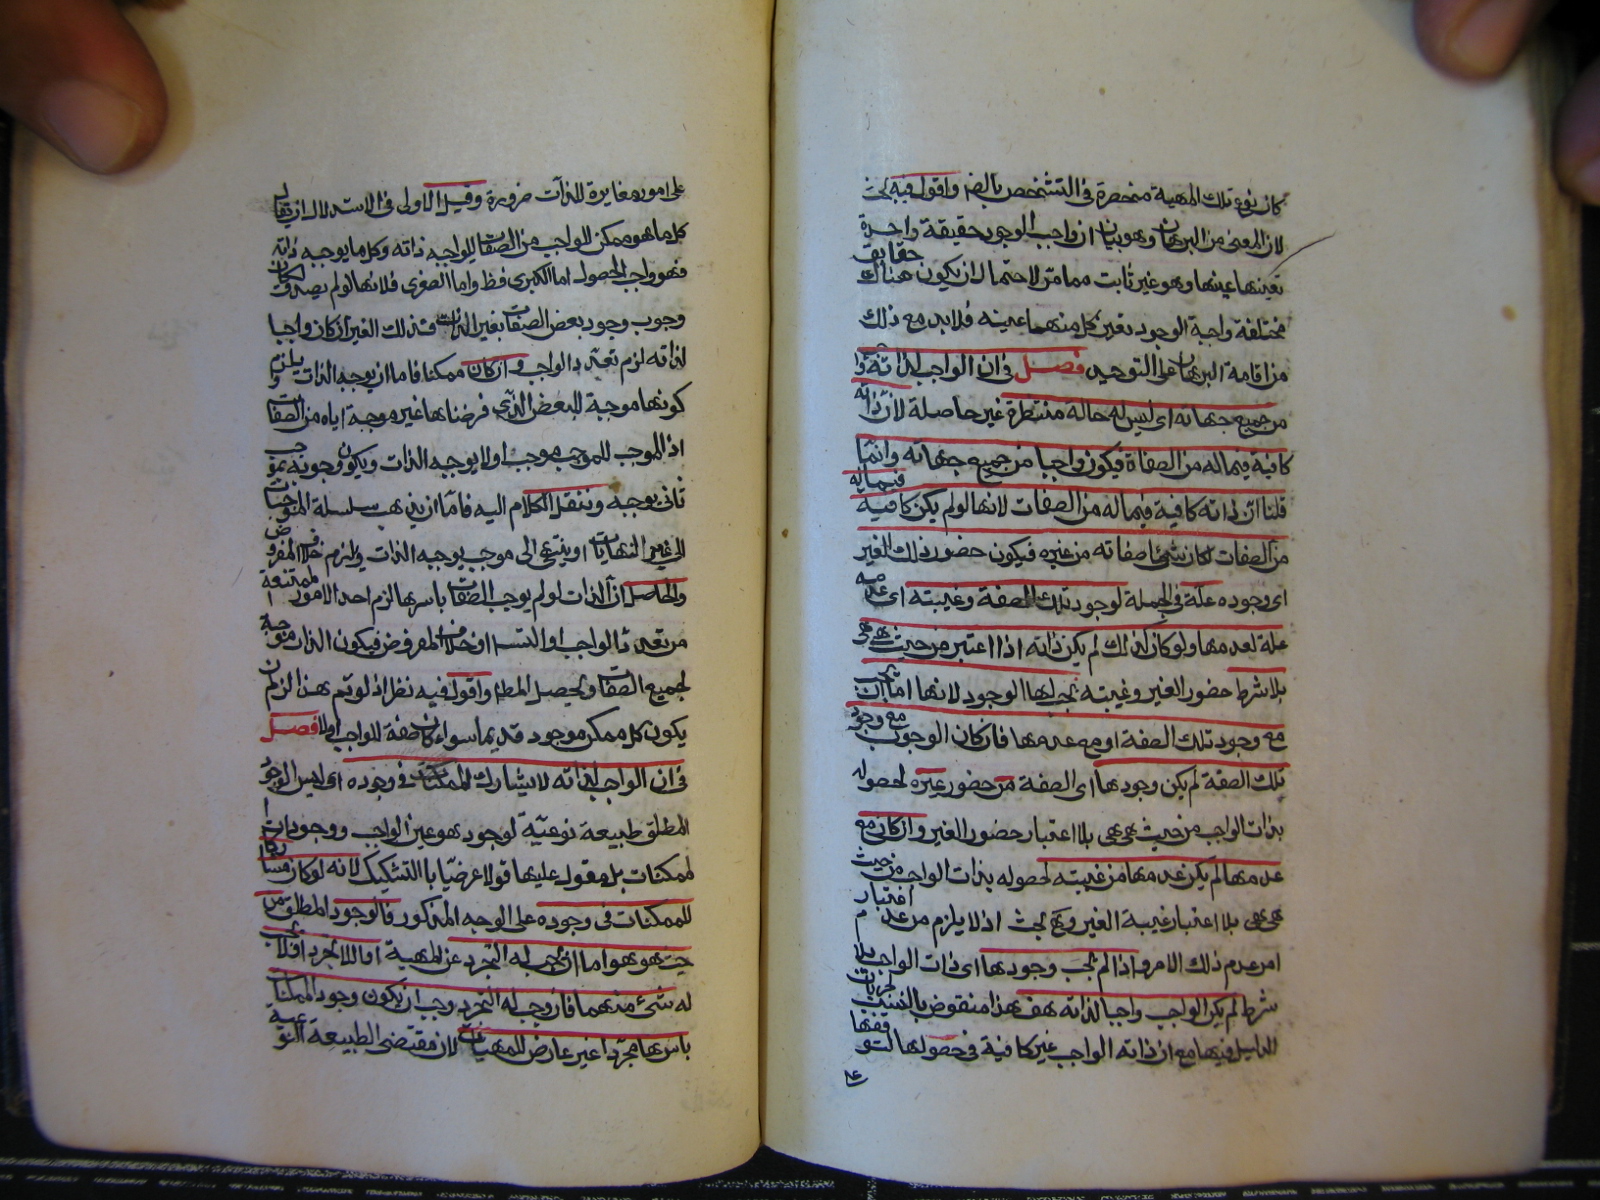 كان نوع تلك المهية منحصرة فى التشخص بالضرورة واقول فيه بحث
لان المعنى من البرهان وهو بيان ان واجب الوجود حقيقة واحدة
تعينها عينها وهو غير ثابت مما مر لاحتمال ان يكون هناك حقايق
مختلفة واجبة الوجود تعين كل منهما عينه فلابد مع ذلك
من اقامة البرهان على التوحيد فصل فى ان الواجب لذاته واجب
من جميع جهاته اى ليس له حالة منتظرة غير حاصلة لان ذاته
كافية فيما له من الصفاة فيكون واجبا من جميع جهاته وانما
قلنا ان ذاته كافية فيما له من الصفات لانها لو لم يكن كافية فيما له
من الصفات لكان شئ من صفاته من غيره فيكون حضور ذلك الغير
اى وجوده علة فى الجملة لوجود تلك الصفة وغيبته اى عدمه
علة لعدمها ولو كان كذلك لم يكن ذاته اذا اعتبر من حيث هى هى
بلا شرط حضور الغير وغيبته يجب لها الوجود لانها اما ان يجب
مع وجود تلك الصفة او مع عدمها فان كان الوجوب مع وجود
تلك الصفة لم يكن وجودها اى الصفة من حضور غيره لحصوله
بذات الواجب من حيث هى هى بلا اعتبار حضور الغير وان كان مع
عدمها لم يكن عدمها من غيبته لحصوله بذات الواجب من حيث
هى هى بلا اعتبار غيبة الغير وفيه بحث اذ لا يلزم من عدم اعتبار
امر عدم ذلك الامر واذا لم يجب وجودها اى ذات الواجب بلا
شرط لم يكن الواجب واجبا لذاته هف هذا منقوض بالنسب لجريان
الدليل فيها مع ان ذاته الواجب غير كافية فى حصولها لتوقفها
على امور مغايرة للذات ضرورة وقيل الاولى فى الاستدلال ان يقال
كل ما هو ممكن للواجب من الصفات يوجبه ذاته وكل ما يوجبه ذاته
فهو واجب الحصول اما الكبرى فظ واما الصغرى فلانها لو لم يصدق لكان
وجوب وجود بعض الصفات بغير الذات فذلك الغير ان كان واجبا
لذاته لزم تعدد الواجب وان كان ممكنا فاما ان يوجبه الذات يلزم
كونها موجبة للبعض الذى فرضناها غير موجبة اياه من الصفات
اذ الموجب للموجب موجب او لا يوجبه الذات ويكون وجوبه بموجب
ثانى يوجبه وننقل الكلام اليه فاما ان يذهب سلسلة الموجبات
الى غير النهايات او ينتهى الى موجب يوجبه الذات ويلزم خلاف المفروض
والحاصل ان الذات لو لم يوجب الصفات باسرها لزم احد الامور الممتنعة
من تعدد الواجب او التسلسل او خلاف المفروض فيكون الذات موجبة
لجميع الصفات ويحصل المطلوب واقول فيه نظر اذ لو تم هذا لزم ان
يكون كل ممكن موجود قديما سواء كان صفة للواجب او لا فصل
فى ان الواجب لذاته لا يشارك الممكنات فى وجوده اى ليس الوجود
المطلق طبيعة نوعية لوجود هو عين الواجب ووجودات
الممكنات بل مقول عليها قولا عرضيا بالتشكيك لانه لو كان مشاركا
للممكنات فى وجوده على الوجه المذكور فالوجود المطلق من
حيث هو هو اما ان يجب له التجرد عن المهية او اللاتجرد او لا يجب
له شئ منهما فان وجب له التجرد وجب ان يكون وجود الممكنات
باسرها مجردا غير عارض للمهيات لان مقتضى الطبيعة النوعية